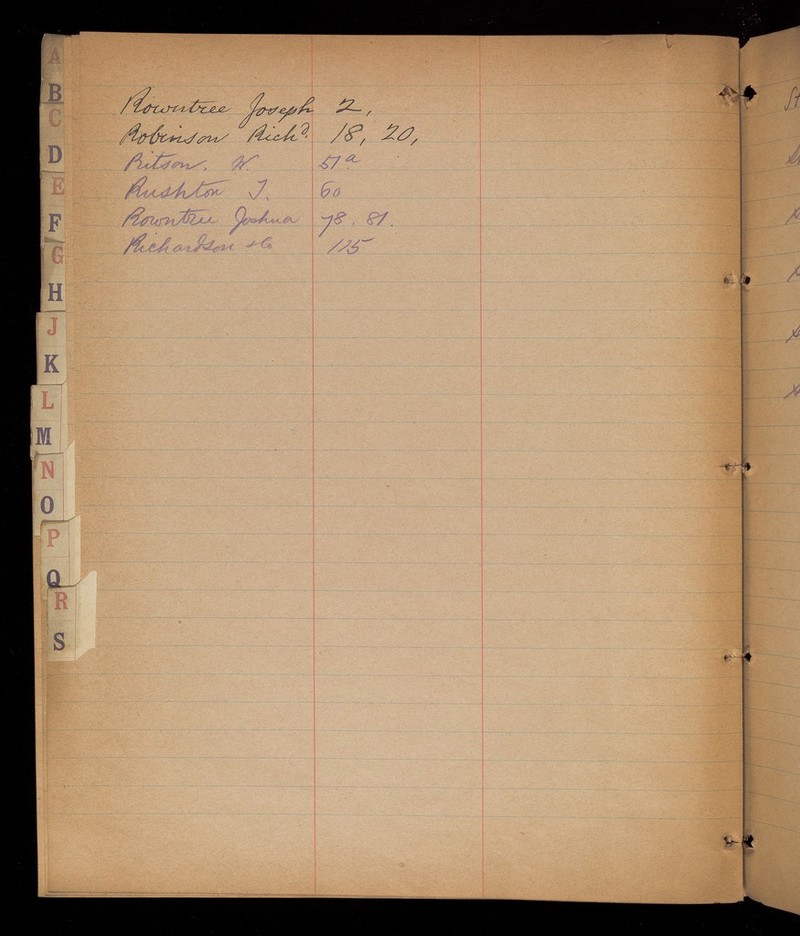 A
B
C
D
E
F
G
H
J
K
L
M
N
O
P
Q
R
S
Rowntree Joseph 2,
Robinson Richd. 18, 20,
Ritson. W. 51a
Rushton J. 60
Rowntree Joshua 78. 81.
Richardson & Co 125